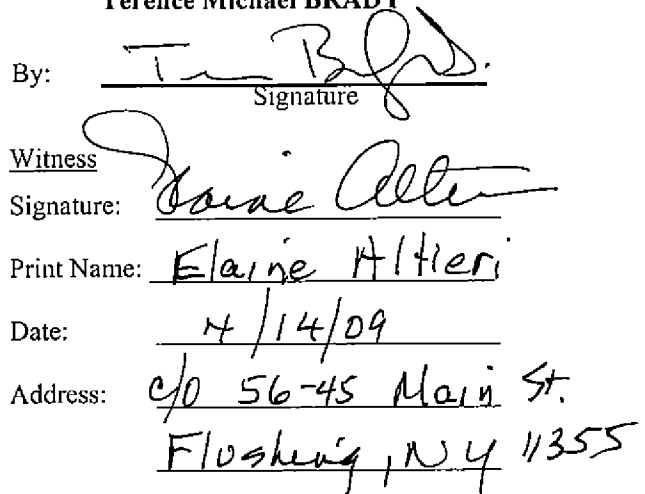 Terence Michael BRADY
By:
Signature
Witness
Signature: Elaine Altieri
Print Name: Elaine Altieri
Date: 4/14/09
Address: c/o 56-45 Main St.
Flushing, NY 11355